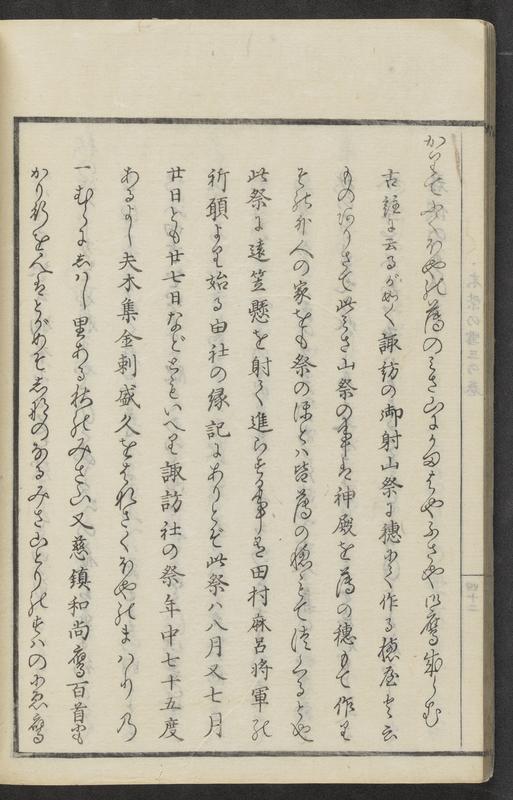 かりてふくほやの薄のみさ山にかまはやふさや御鷹成らむ
古註に云るが如く諏訪の御射山祭に穂にて作る穂屋と云
ものありさて此みさ山祭の事は神殿を薄の穂もて作り
其外人の家をも祭のほとハ皆薄の穂にて造くるとや
此祭に遠笠懸を射て進らする事は田村麻呂将軍の
祈願より始る由社の縁記にありとぞ此祭ハ八月又七月
廿日とも廿七日などともいへり諏訪社の祭年中七十五度
あるよし夫木集金刺盛久をはなさくほやのまハり乃
一むらにしハし里ある秋のみさ山又慈鎮和尚鷹百首にも
かり衣を人はとがめそしなのなるみさ山とりのすハの小鷹